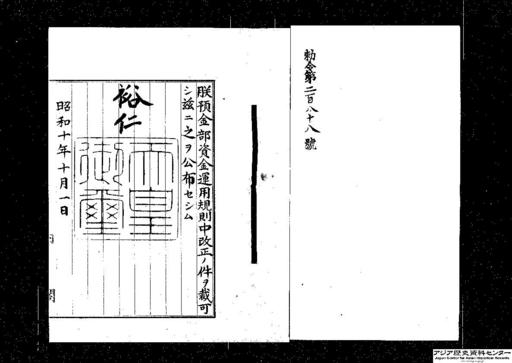 勅令第二百八十八號
朕預金部資金運用規則中改正ノ件ヲ裁可
シ茲ニ之ヲ公布セシム
裕仁
天皇御璽
昭和十年十月一日
内閣
アジア歴史資料センター
Japan Center for Asian Historical Records